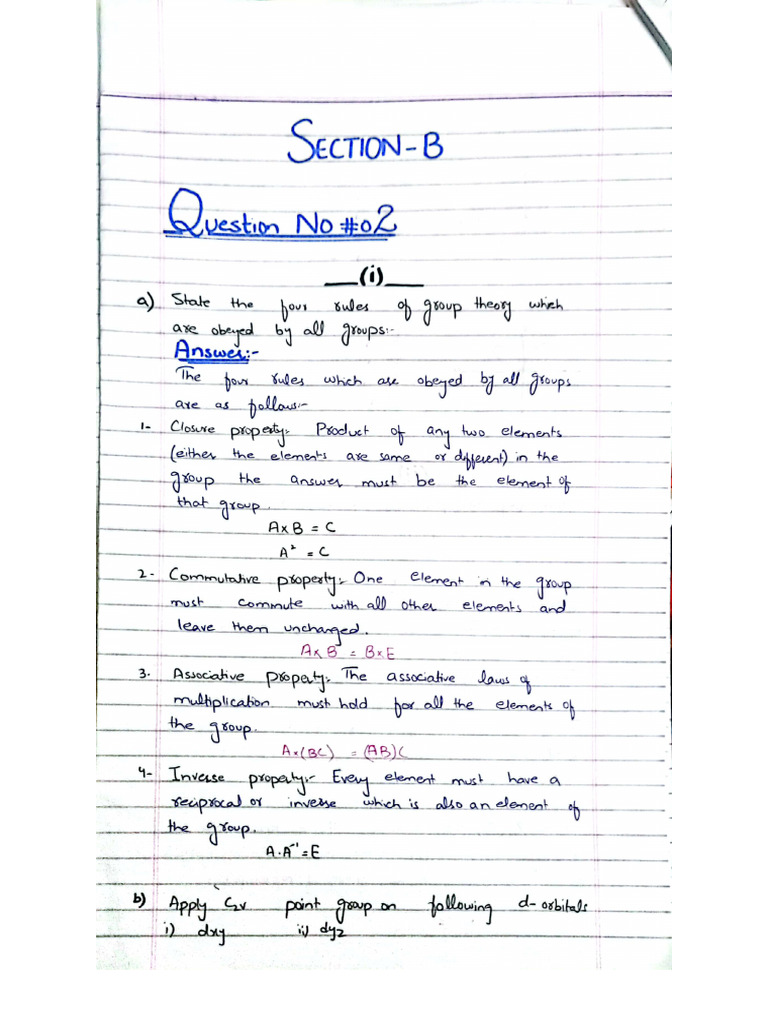 SECTION-B
Question No #02
(i)
a) State the four rules of group theory which
are obeyed by all groups:-
Answer:-
The four rules which are obeyed by all groups
are as follows:-
1- Closure property:- Product of any two elements
(either the elements are same or different) in the
group the answer must be the element of
that group.
A×B = C
A² = C
2- Commutative property:- One element in the group
must commute with all other elements and
leave them unchanged.
A×B = B×E
3. Associative property:- The associative laws of
multiplication must hold for all the elements of
the group.
A×(BC) = (AB)C
4- Inverse property:- Every element must have a
reciprocal or inverse which is also an element of
the group.
A.A⁻¹=E
b) Apply C₂v point group on following d-orbitals
i) dxy ii) dyz